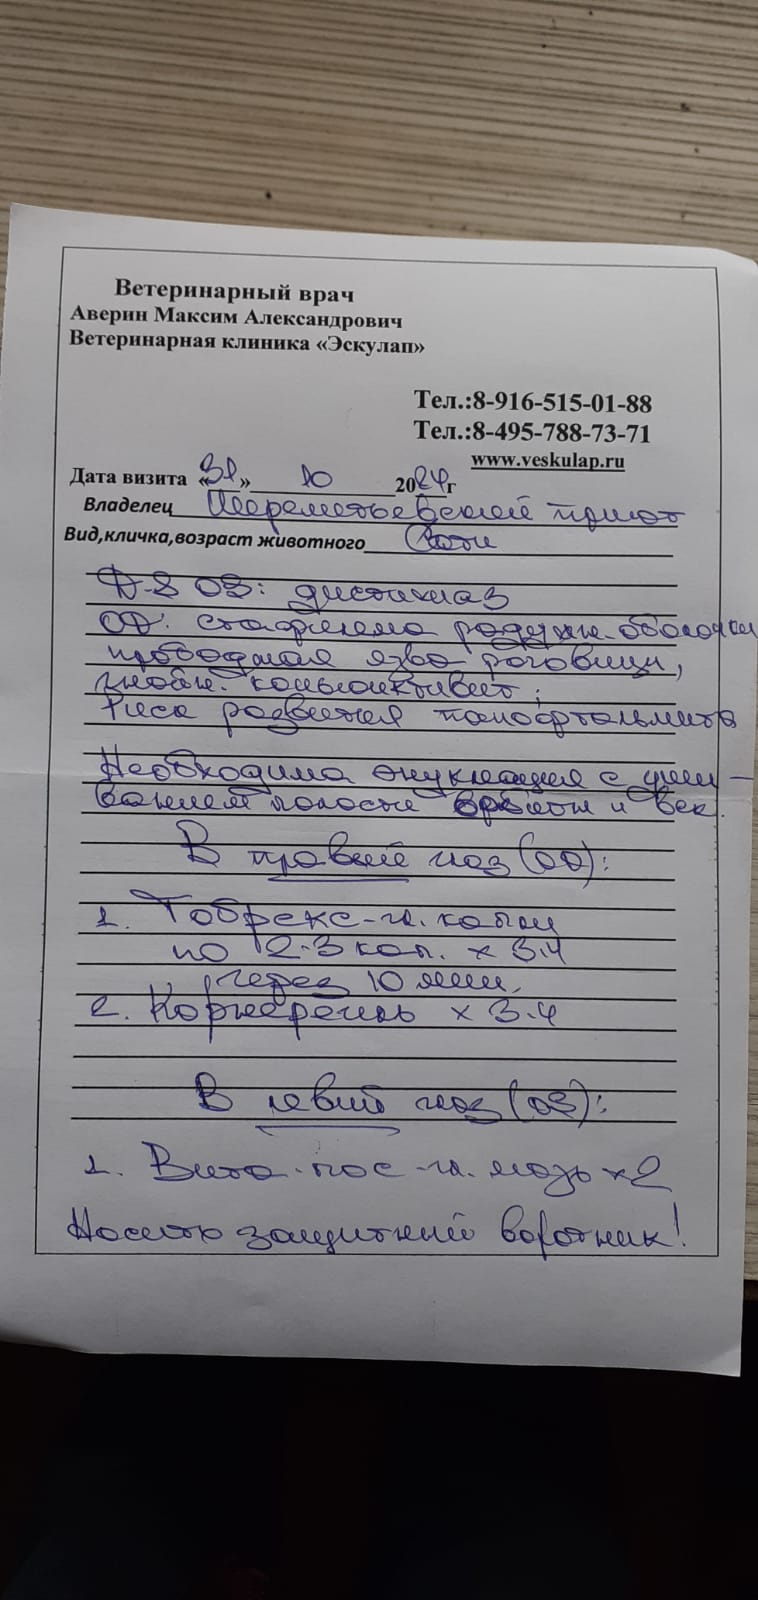 Ветеринарный врач
Аверин Максим Александрович
Ветеринарная клиника «Эскулап»
Тел.:8-916-515-01-88
Тел.:8-495-788-73-71
www.veskulap.ru
Дата визита «31» 10 2024г
Владелец Шереметьевский приют
Вид,кличка,возраст животного
D-S OS: дистихиаз
OD: стафилома радужн. оболочки
прободная язва роговицы,
гнойн. конъюнктивит;
Риск развития панофтальмита
Необходима энуклеация с ушиванием
полости орбиты и век.
В правый глаз (OD):
1. Тобрекс-гл. капли
по 2-3 кап. х 3.4
через 10 мин.
2. Корнерегель х 3.4
В левый глаз (OS):
1. Вита-пос-гл. мазь х2
Носить защитный воротник!